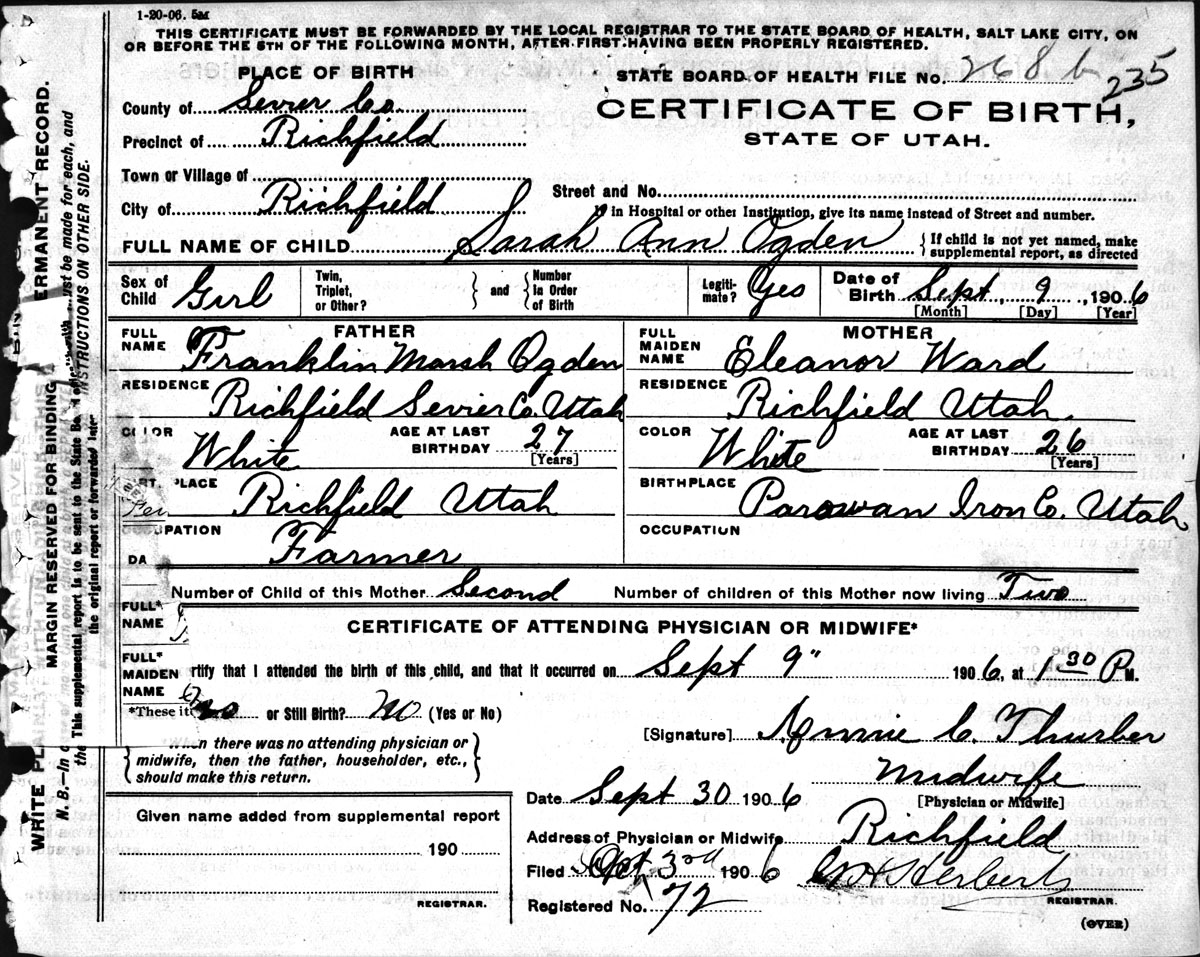 1-20-06. 5M
THIS CERTIFICATE MUST BE FORWARDED BY THE LOCAL REGISTRAR TO THE STATE BOARD OF HEALTH, SALT LAKE CITY, ON
OR BEFORE THE 5TH OF THE FOLLOWING MONTH, AFTER FIRST HAVING BEEN PROPERLY REGISTERED.
PLACE OF BIRTH
STATE BOARD OF HEALTH FILE NO. 268 b 235
County of Sevier Co.
CERTIFICATE OF BIRTH,
Precinct of Richfield
STATE OF UTAH.
Town or Village of
Street and No.
City of Richfield
in Hospital or other Institution, give its name instead of Street and number.
FULL NAME OF CHILD Sarah Ann Ogden { If child is not yet named, make
supplemental report, as directed
Sex of Child Girl
Twin, Triplet, or Other? } and { Number In Order of Birth
Legiti- mate? Yes
Date of Birth Sept. 9, 1906
[Month] [Day] [Year]
FATHER
FULL NAME Franklin Marsh Ogden
RESIDENCE Richfield Sevier Co. Utah
COLOR White AGE AT LAST BIRTHDAY 27 [Years]
PLACE Richfield Utah
OCCUPATION Farmer
MOTHER
FULL MAIDEN NAME Eleanor Ward
RESIDENCE Richfield Utah
COLOR White AGE AT LAST BIRTHDAY 26 [Years]
BIRTHPLACE Parowan Iron Co. Utah
OCCUPATION
DA
Number of Child of this Mother Second Number of children of this Mother now living Two
FULL* NAME
CERTIFICATE OF ATTENDING PHYSICIAN OR MIDWIFE*
FULL* MAIDEN NAME
rtify that I attended the birth of this child, and that it occurred on Sept 9" 1906, at 1 30 P M.
*These it
no or Still Birth? no (Yes or No)
[Signature] Annie C. Thurber
When there was no attending physician or
midwife, then the father, householder, etc.,
should make this return.
Midwife
[Physician or Midwife]
Date Sept 30 1906
Given name added from supplemental report
190
REGISTRAR.
Address of Physician or Midwife Richfield
Filed Oct 3rd 1906 Herbert
REGISTRAR.
Registered No. 72
(OVER)
MARGIN RESERVED FOR BINDING
ERMANENT RECORD.
WRITE PLAIN
N. B.—In
ust be made for each, and
INSTRUCTIONS ON OTHER SIDE.
This supplemental report is to be sent to the State Bo
the original report or forwarded